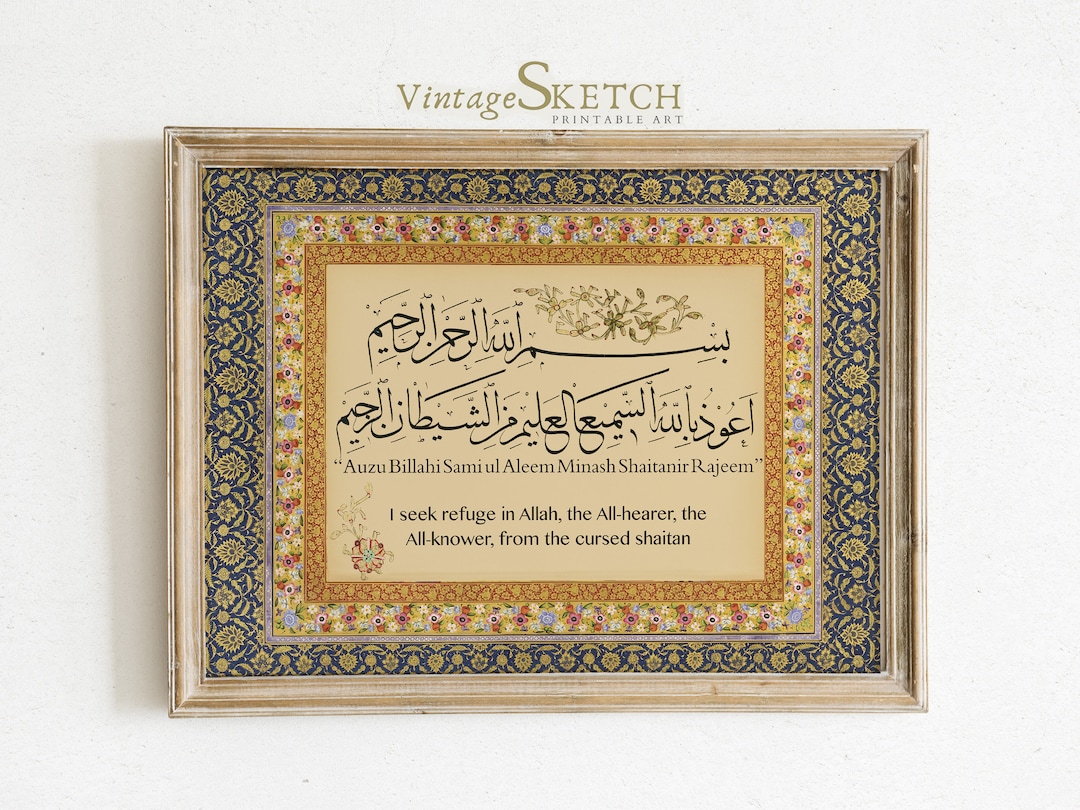 VintageSKETCH
PRINTABLE ART
بِسْمِ اللَّهِ الرَّحْمَٰنِ الرَّحِيمِ
اَعُوْذُ بِاللَّهِ السَّمِيْعِ الْعَلِيْمِ مِنَ الشَّيْطَانِ الرَّجِيْمِ
“Auzu Billahi Sami ul Aleem Minash Shaitanir Rajeem”
I seek refuge in Allah, the All-hearer, the
All-knower, from the cursed shaitan